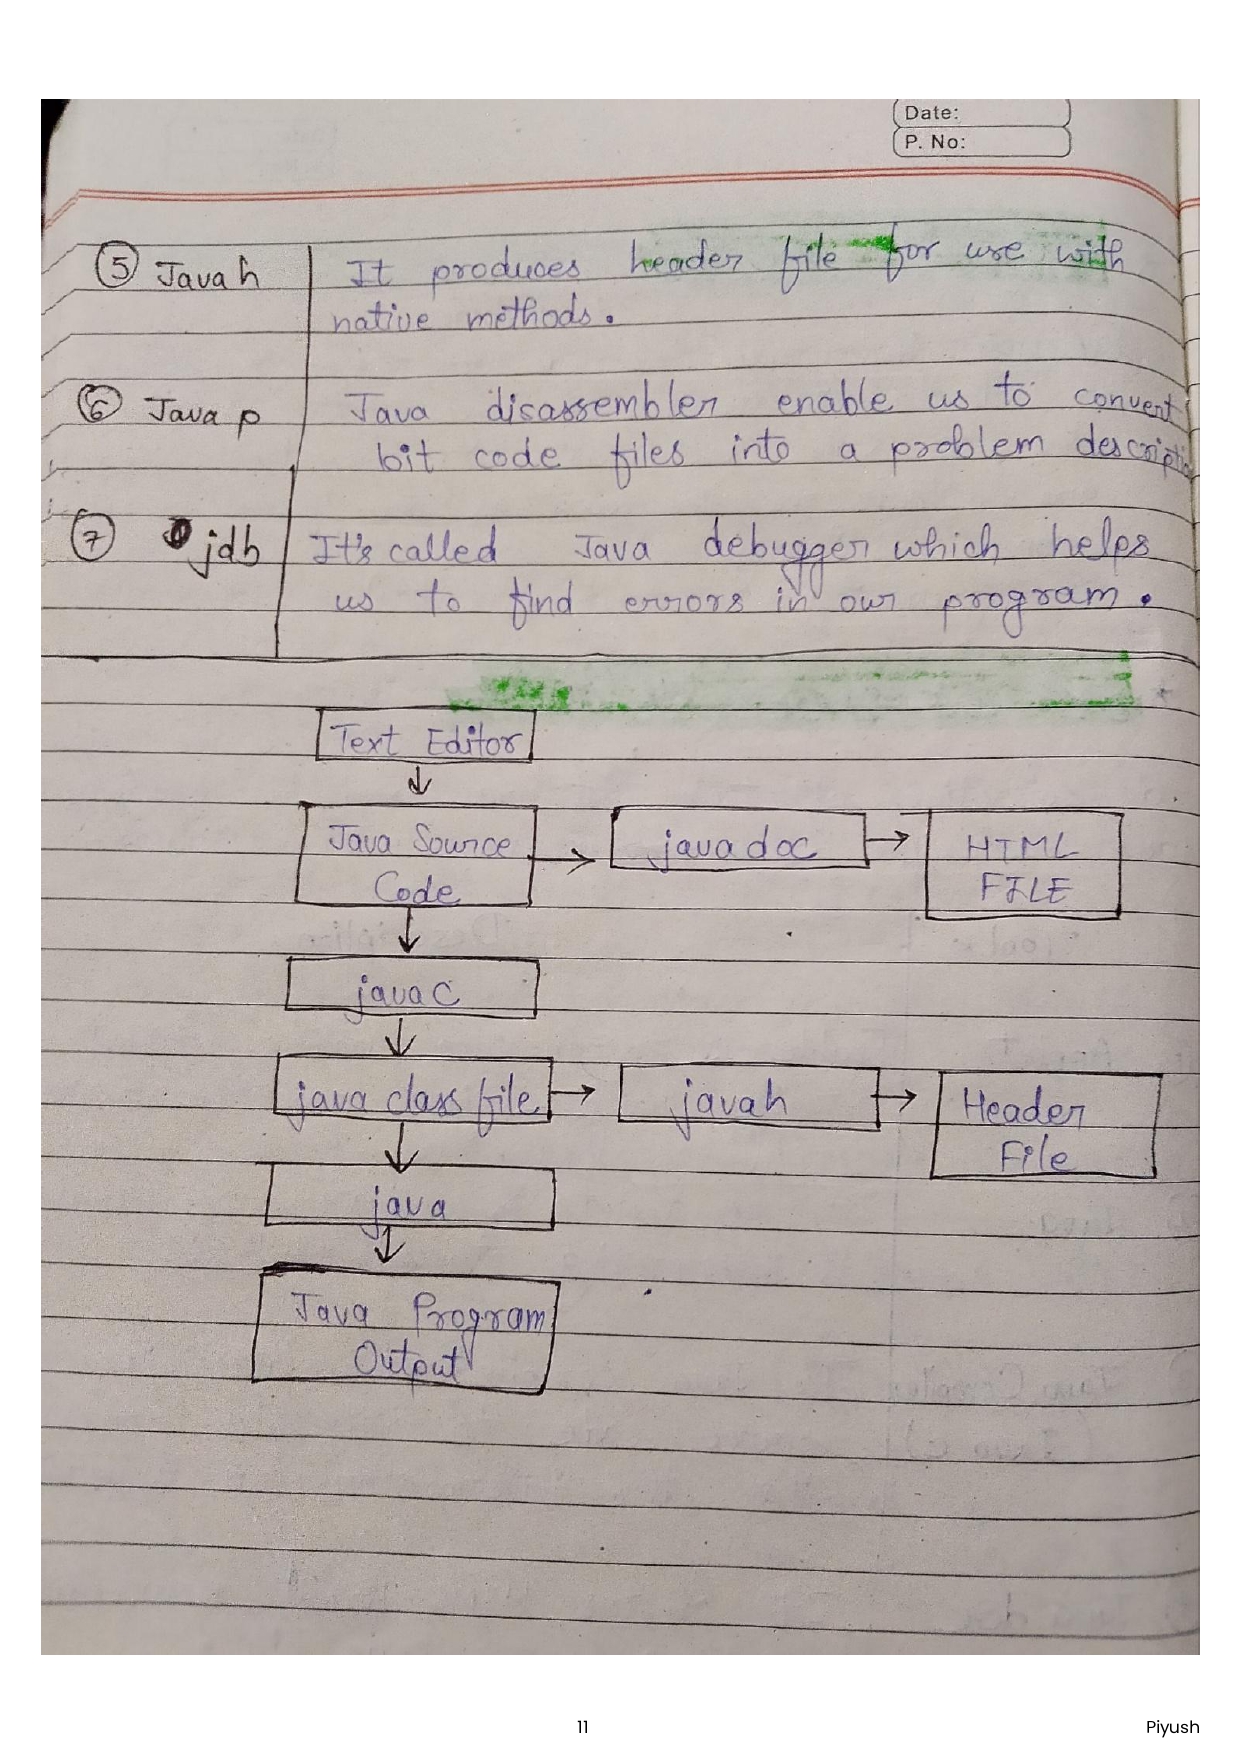 Date:
P. No:
⑤ Java h It produces header file for use with
native methods.
⑥ Java p Java disassembler enable us to convert
bit code files into a problem descripti
⑦ jdb It's called Java debugger which helps
us to find errors in our program.
Text Editor
Java Source
Code
javadoc
HTML
FILE
java C
java class file
javah
Header
File
java
Java Program
Output
11
Piyush